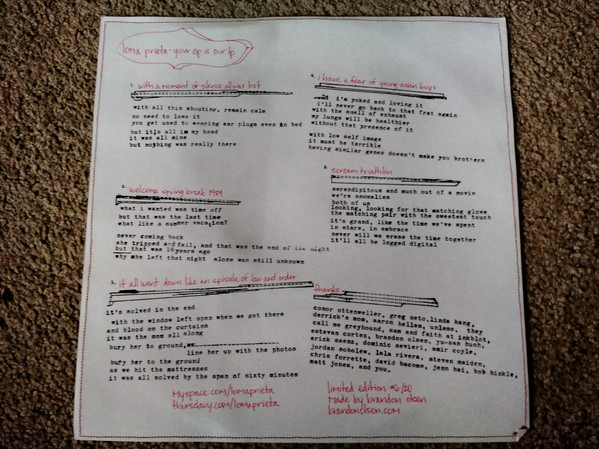 loma prieta - your ep is our lp
1. with a moment of silence al was lost
with all this shouting, remain calm
no need to lose it
you get used to wearing ear plugs even in bed
but it's all in my head
it was all mine
but nothing was really there
2. welcome spring break 1989
what i wanted was time off
but that was the last time
what like a summer vacation?
never coming back
she tripped and fell, and that was the end of the night
but that was 16 years ago
why she left that night alone was still unknown
3. it all went down like an episode of law and order
it's solved in the end
with the window left open when we got there
and blood on the curtains
it was the mom all along
bury her to ground,
line her up with the photos
bury her to the ground
as we hit the mattresses
it was all solved by the span of sixty minutes
myspace.com/lomaprieta
thursday.com/lomaprieta
4. i have a fear of young asian boys
i'm yoked and loving it
i'll never go back to that frat again
with the smell of exhaust
my lungs will be healthier
without that presence of it
with low self image
it must be terrible
having similar genes doesn't make you brothers
5. scream triathlon
serendipitous and much out of a movie
we're anomalies
both of us
looking, looking for that matching glove
the matching pair with the sweetest touch
it's grand, like the time we've spent
in stars, in embrace
never will we erase the time together
it'll all be logged digital
thanks
conor ottenweller, greg neto, linda hang,
derrick's mom, aaron hellam, unless, they
call me greyhound, sam and faith at inkblot,
estevan cortes, brandon olsen, yu-sun huch,
erick aaron, dominic sevieri, amir coyle,
jordan sobolev, lala rivera, steven maiden,
chris forrette, david bacome, jenn bai, bob hinkle,
matt jones, and you.
limited edition #6/20
Made by brandon olsen
brandonolsen.com